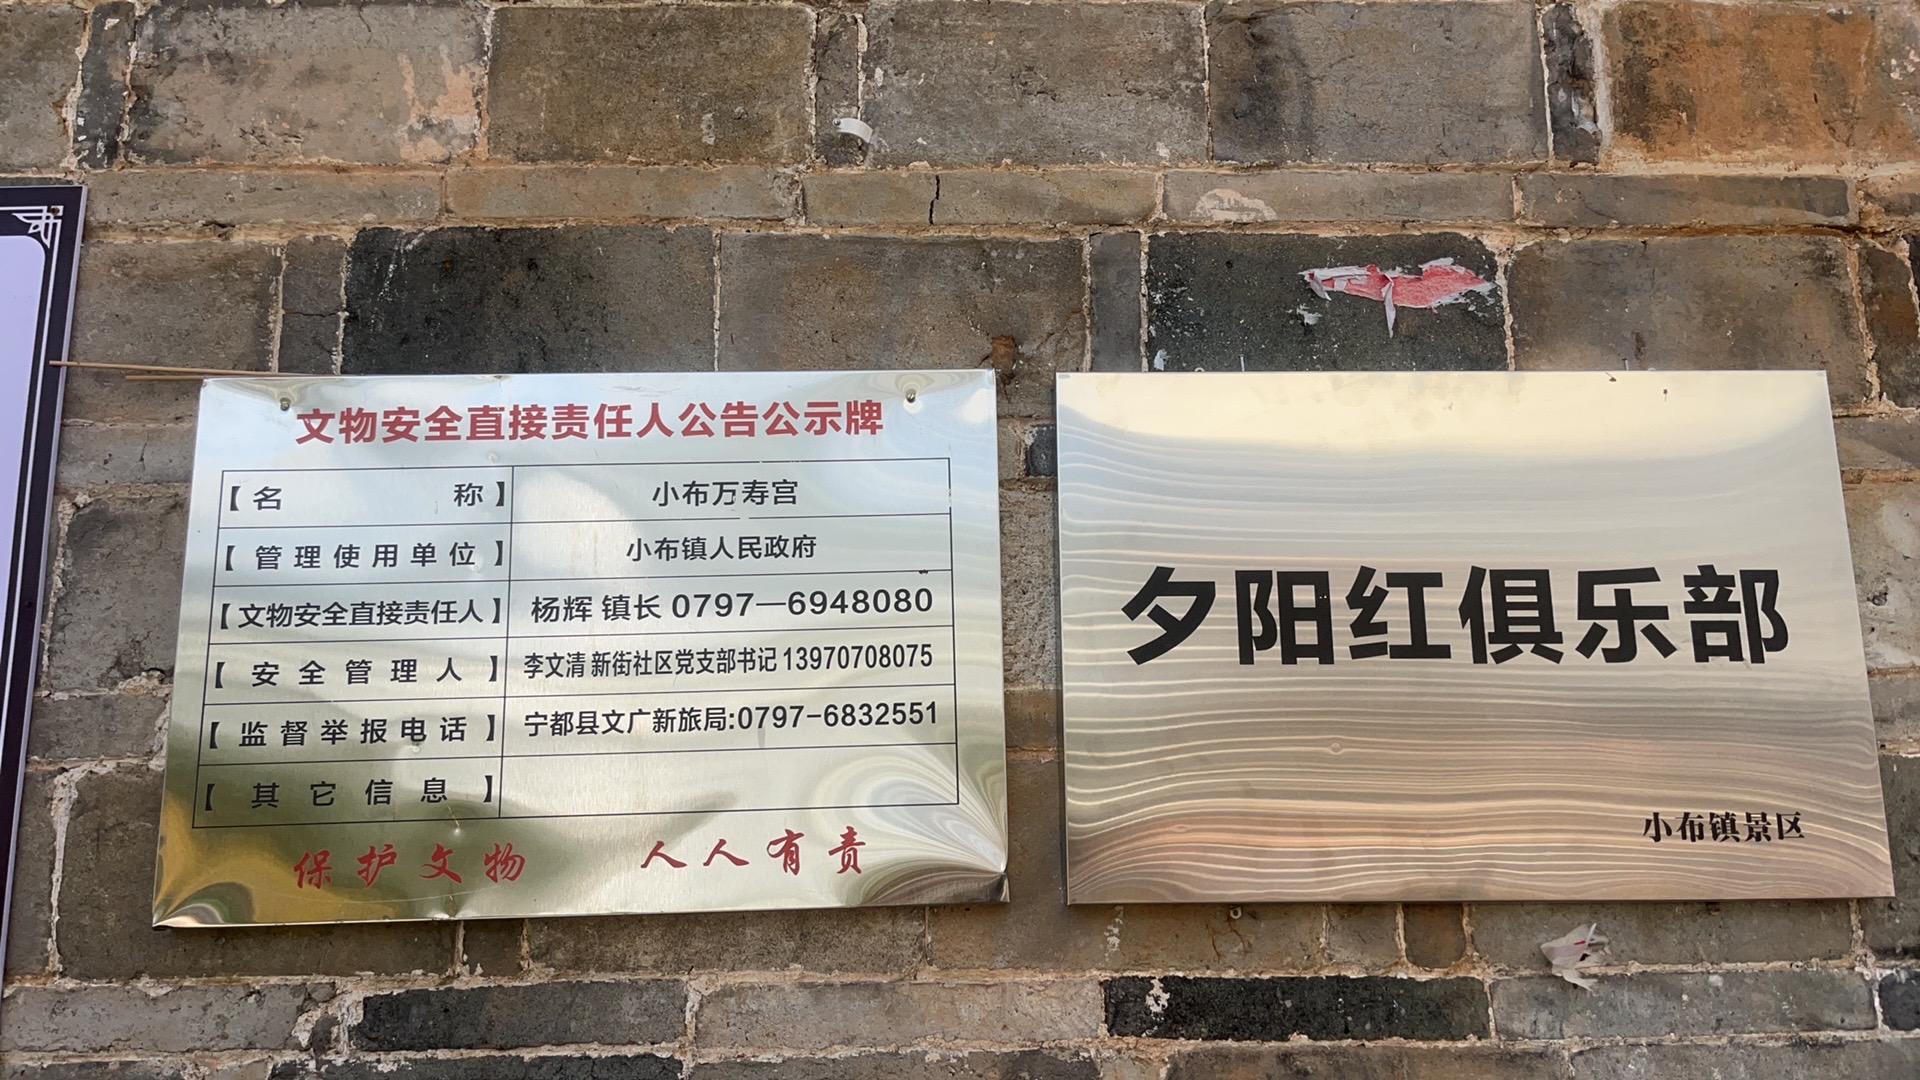 文物安全直接责任人公告公示牌
【名称】 小布万寿宫
【管理使用单位】 小布镇人民政府
【文物安全直接责任人】 杨辉 镇长 0797—6948080
【安全管理人】 李文清 新街社区党支部书记 13970708075
【监督举报电话】 宁都县文广新旅局:0797-6832551
【其它信息】
保护文物 人人有责
夕阳红俱乐部
小布镇景区